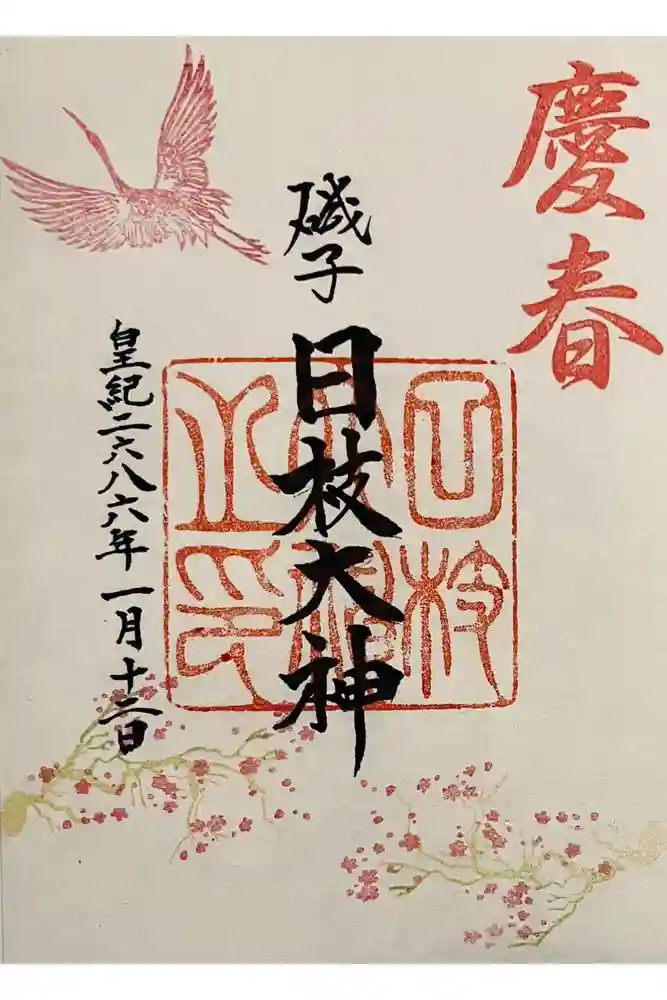 慶春
磯子
日枝大神
日枝
大神
之印
皇紀二六八六年一月十三日